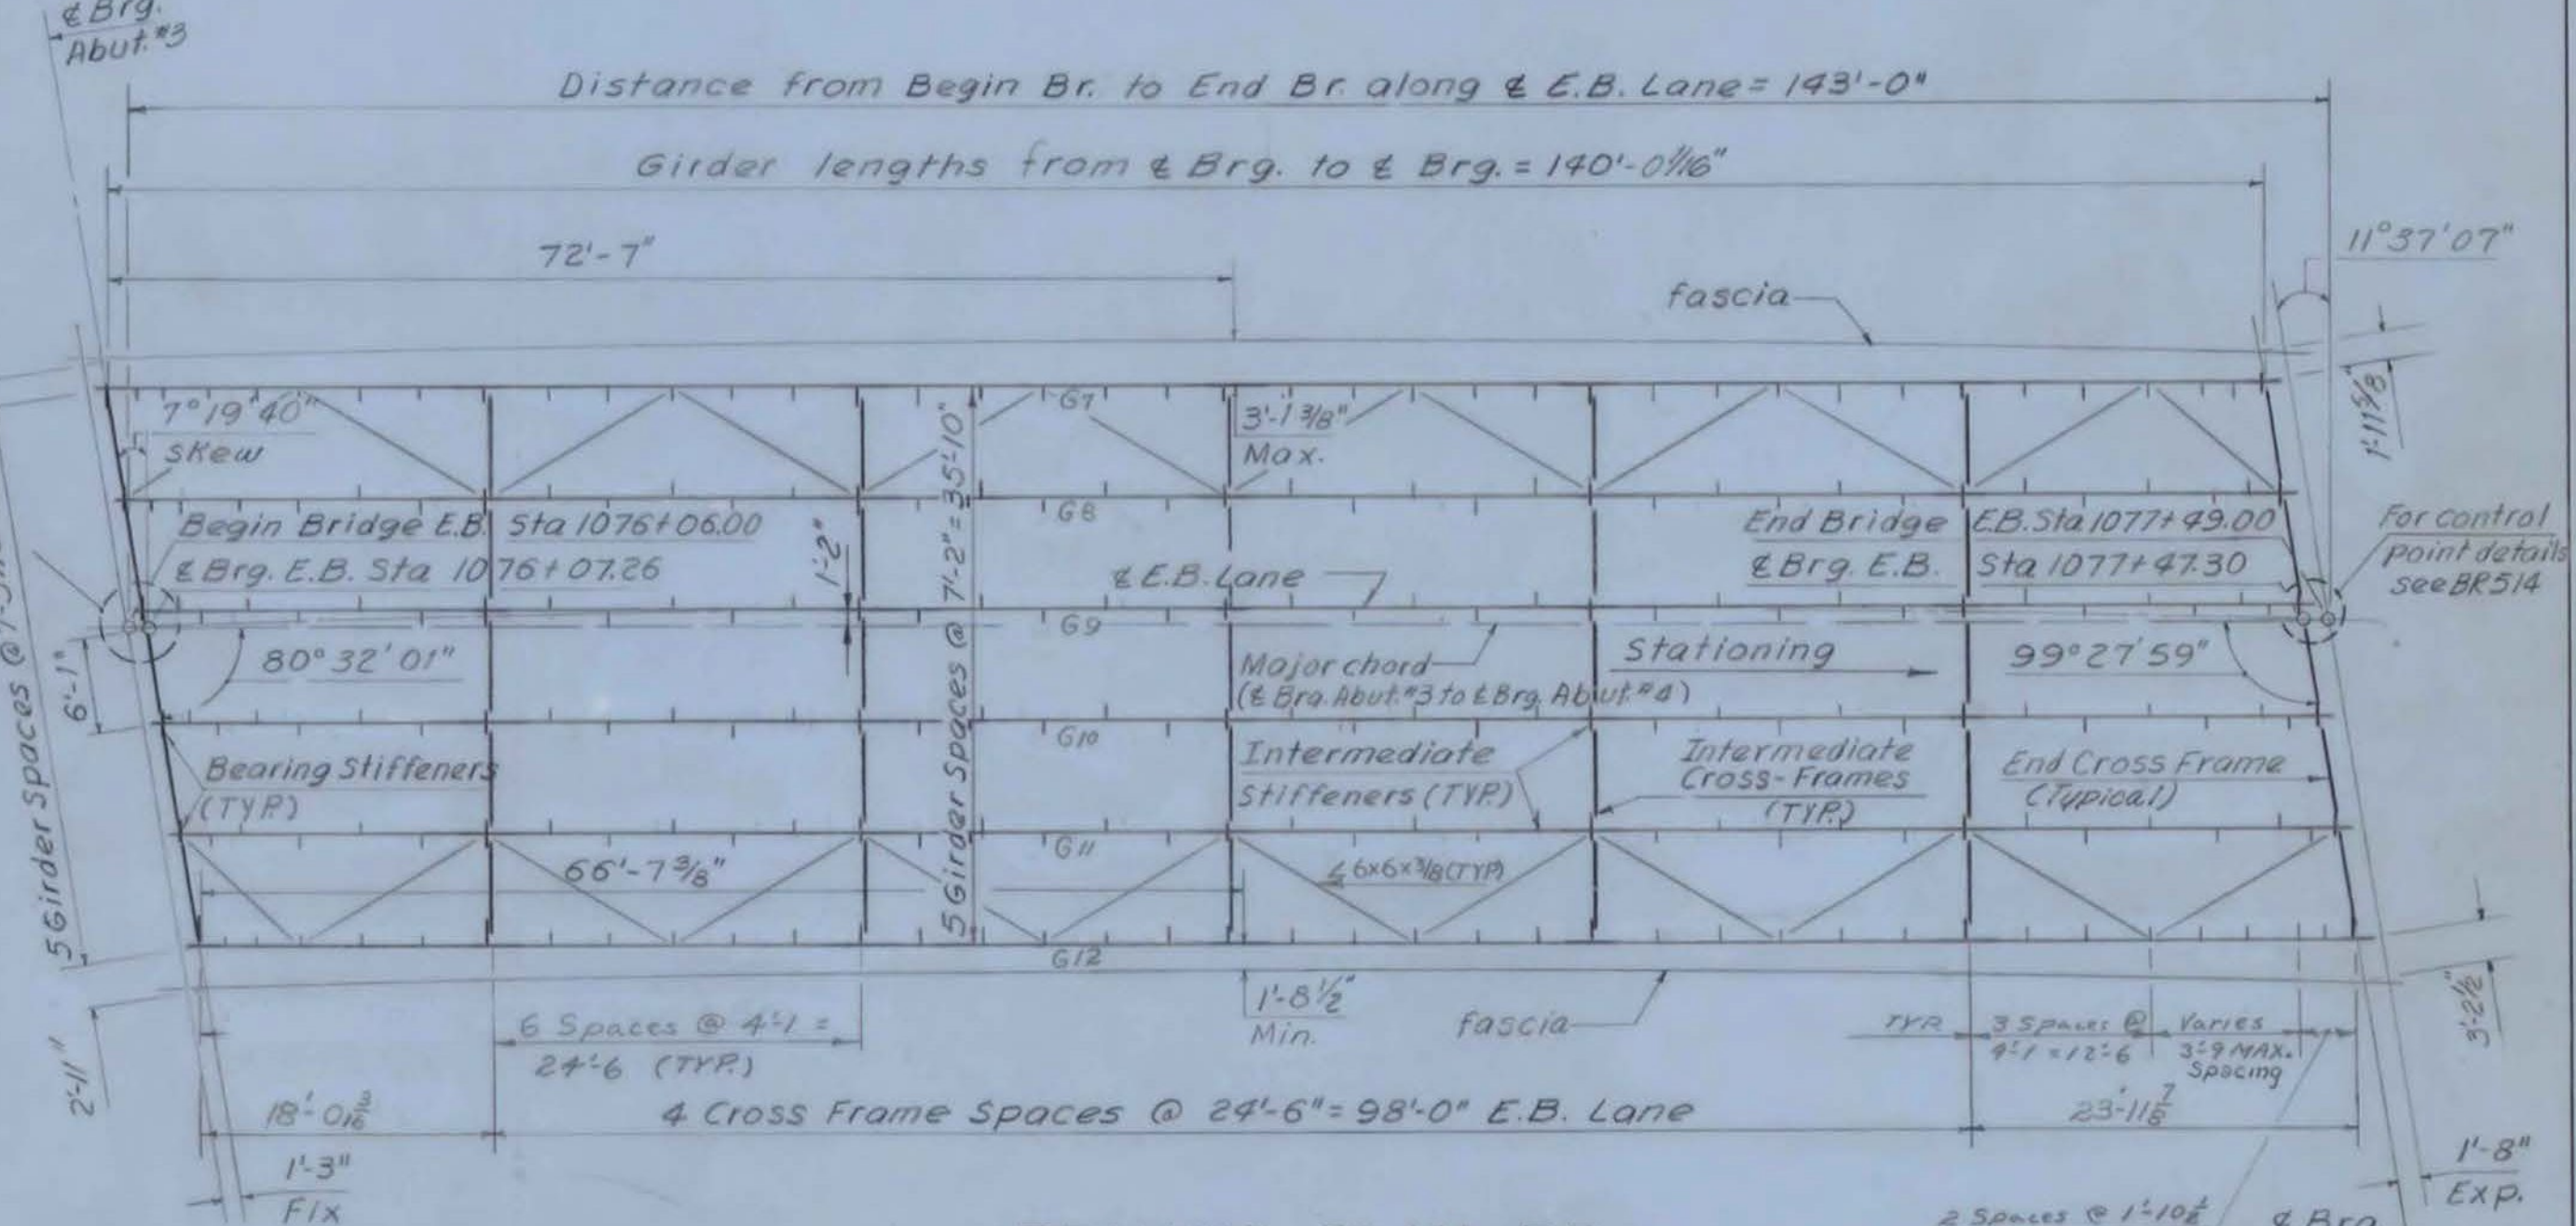 ℄ Brg.
Abut. #3
Distance from Begin Br. to End Br. along ℄ E.B. Lane = 143'-0"
Girder lengths from ℄ Brg. to ℄ Brg. = 140'-0 1/16"
72'-7"
11°37'07"
fascia
7°19'40"
skew
G7
3'-1 3/8"
Max.
1'-11 5/8"
G8
Begin Bridge E.B. Sta 1076+06.00
℄ Brg. E.B. Sta 1076+07.26
1'-2"
5 Girder Spaces @ 7'-2" = 35'-10"
℄ E.B. Lane
End Bridge E.B. Sta 1077+49.00
℄ Brg. E.B. Sta 1077+47.30
For control
point details
see BR514
G9
5 Girder Spaces @
6'-1"
80°32'01"
Major chord
(℄ Brg. Abut. #3 to ℄ Brg. Abut. #4)
Stationing
99°27'59"
G10
Bearing Stiffeners
(TYP.)
Intermediate
Stiffeners (TYP.)
Intermediate
Cross-Frames
(TYP.)
End Cross Frame
(Typical)
G11
66'-7 3/8"
∠ 6x6x3/8 (TYP)
G12
1'-8 1/2"
Min.
fascia
3'-2 1/2"
2'-11"
6 Spaces @ 4'-1 =
24'-6 (TYP.)
TYP.
3 Spaces @
4'-1 = 12'-6
Varies
3'-9 MAX.
Spacing
18'-0
4 Cross Frame Spaces @ 24'-6" = 98'-0" E.B. Lane
23'-11 7/8
1'-3"
Fix
1'-8"
Exp.
2 Spaces @ 1'-10 1/2
℄ Brg